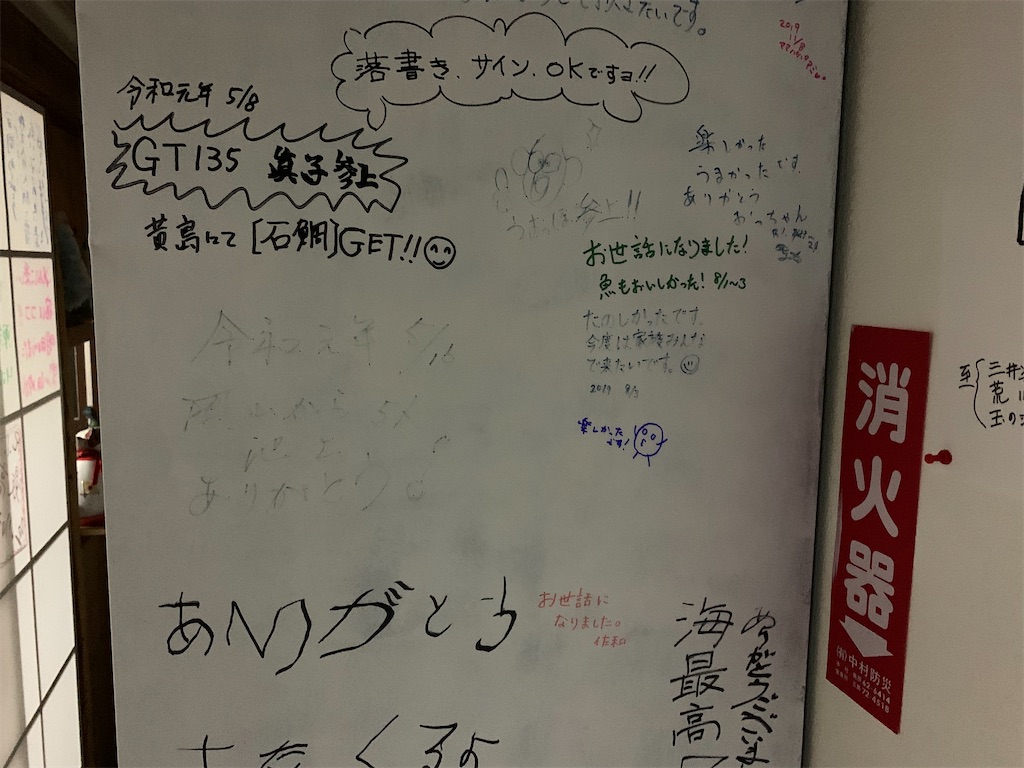 たいです。
2019
11/8
落書き、サイン、OKですョ!!
令和元年 5/8
GT135 眞子参上
黄島にて [石鯛]GET!!
参上!!
楽しかった
うまかったです。
ありがとう
おっちゃん
お世話になりました!
魚もおいしかった! 8/1~3
たのしかったです。
今度は家族みんな
で来たいです。
2019 8/3
楽しかった
です!
令和元年 5/16
ありがとう
ありがとう
お世話に
なりました。
佐和
海最高
ありがとうございま
またくるね
消火器
(有)中村防災
至
三井
荒
玉の